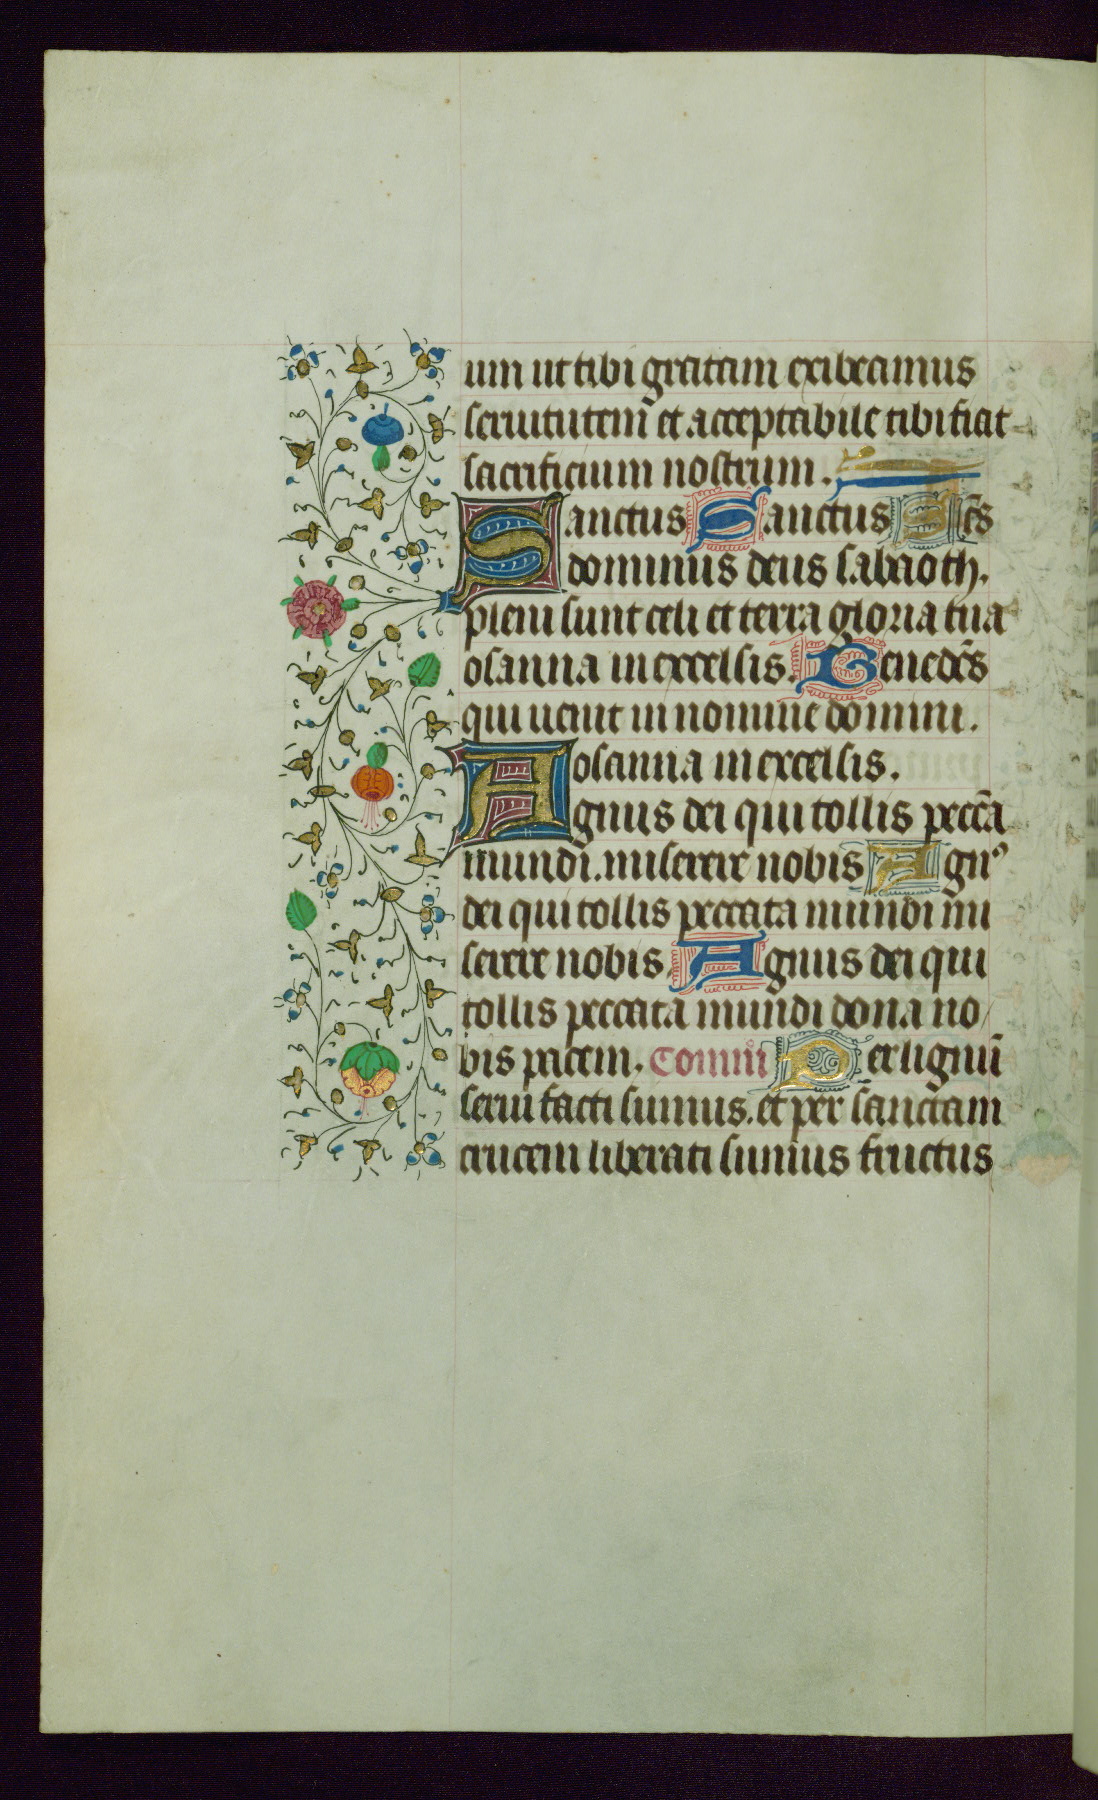 um ut tibi gratam exibeamus
seruitutem̄ et acceptabile tibi fiat
sacrificium nostrum.
Sanctus Sanctus Sc̄s
dominus deus sabaoth.
pleni sunt celi et terra gloria tua
osanna in excelsis. Benedc̄s
qui uenit in nomine domini.
osanna in excelsis.
Agnus dei qui tollis pecc̄a
mundi. miserere nobis Agnꝰ
dei qui tollis peccata mundi mi
serere nobis Agnus dei qui
tollis peccata mundi dona no
bis pacem. Com̄ui Per lignū
serui facti sumus. et per sanctam
crucem liberati sumus fructus